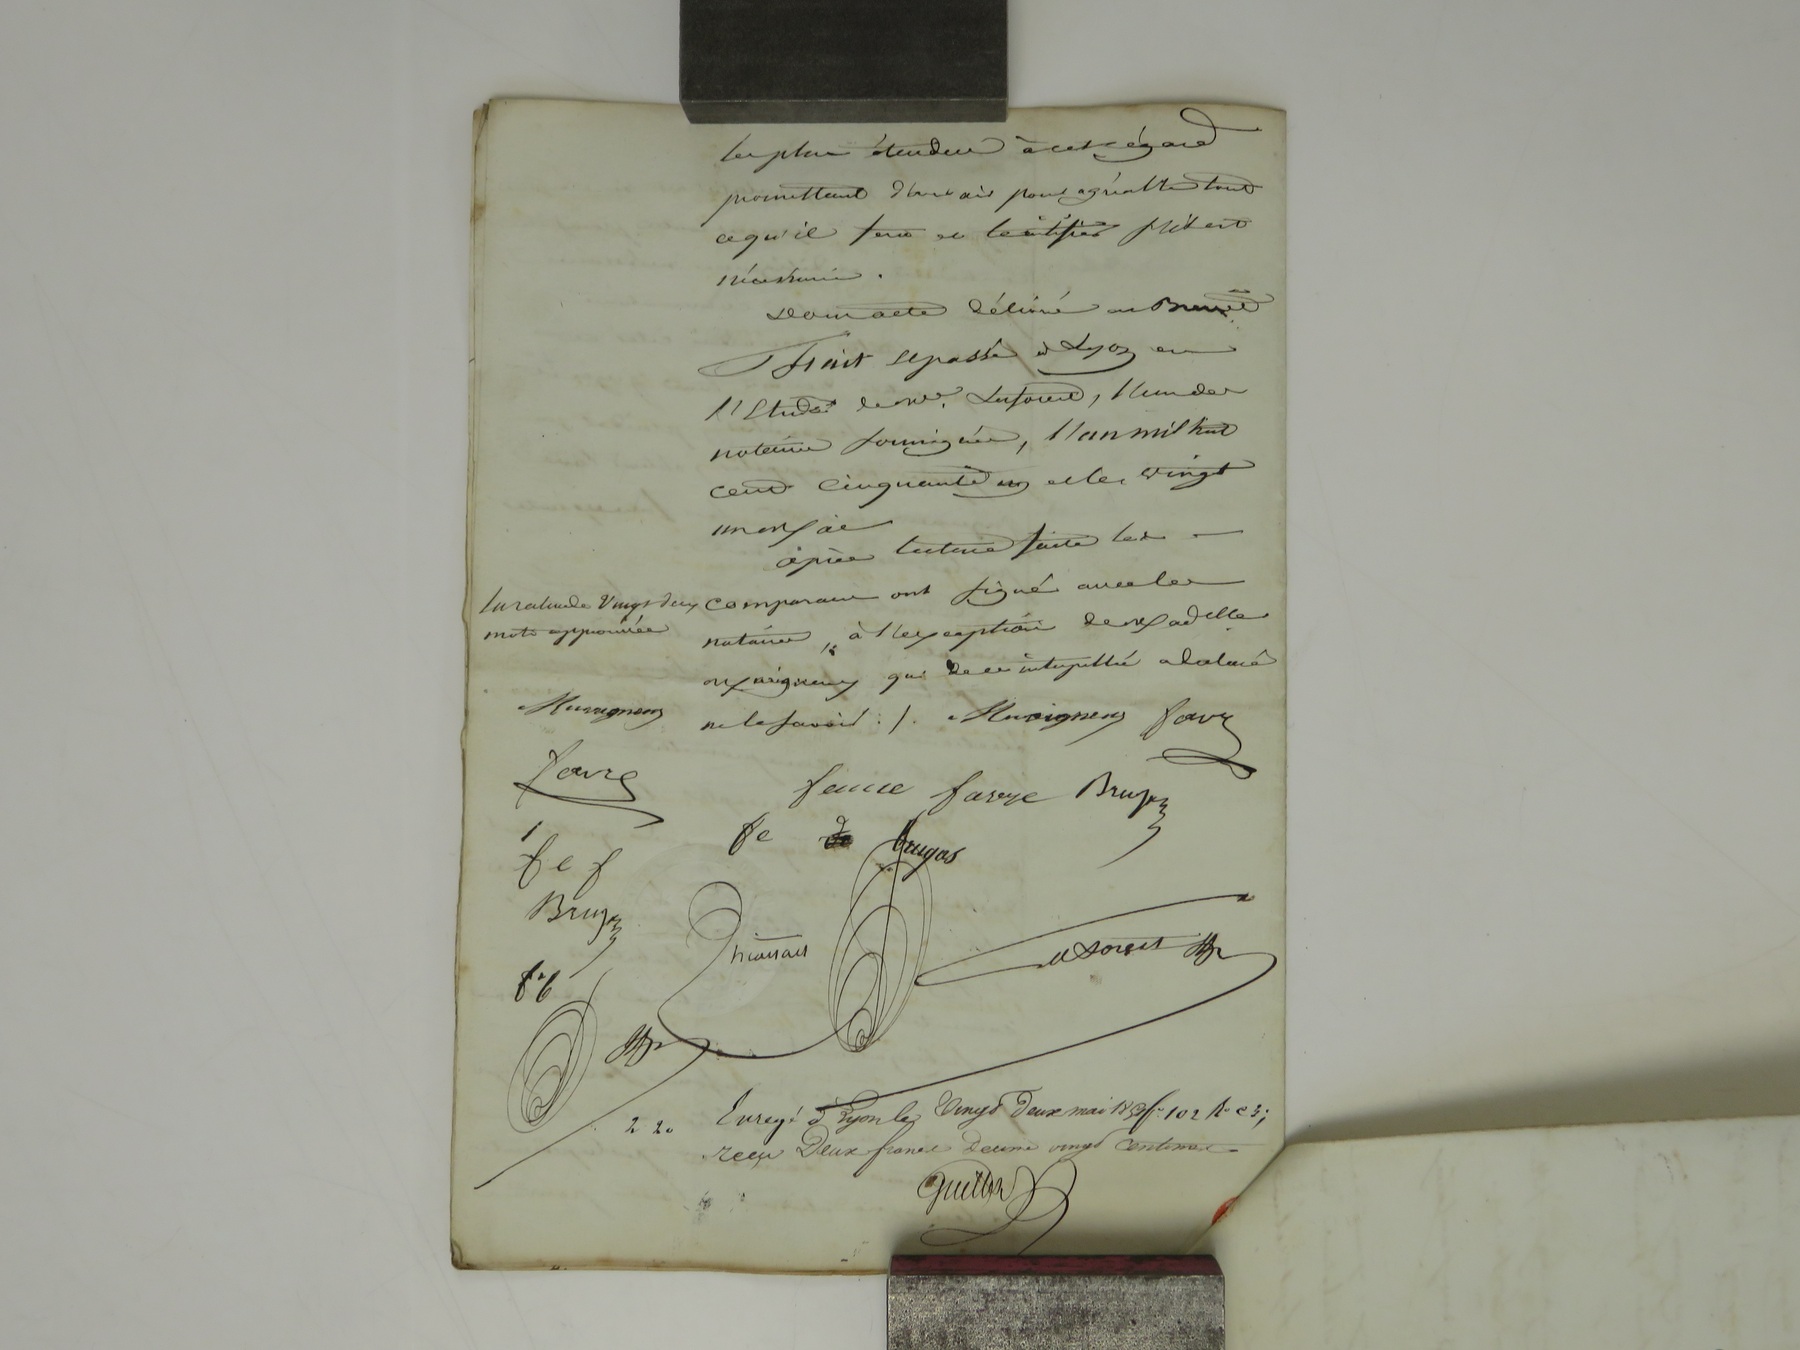 les plus étendus à cet égard
promettant d'avoir pour agréable tout
ce qu'il fera et le ratifier s'il est
nécessaire.
Dont acte délivré en Brevet
Fait et passé à Lyon en
l'Etude de Me. Laforest, l'un des
notaires soussignés, l'an mil huit
cent cinquante un et le vingt
un mai
après lecture faite les
comparans ont signé avec les
notaires, à l'exception de Made
qui de ce interpellé a déclaré
ne le savoir ./.
La rature de Vingt deux
mots approuvée
Favre
Favre
favre Bruyas
fe
f e f
Bruyas
Laforest
2 20
Enregé à Lyon le Vingt Deux mai 1851 fo 102 Ro C 3;
reçu Deux francs décime vingt centimes